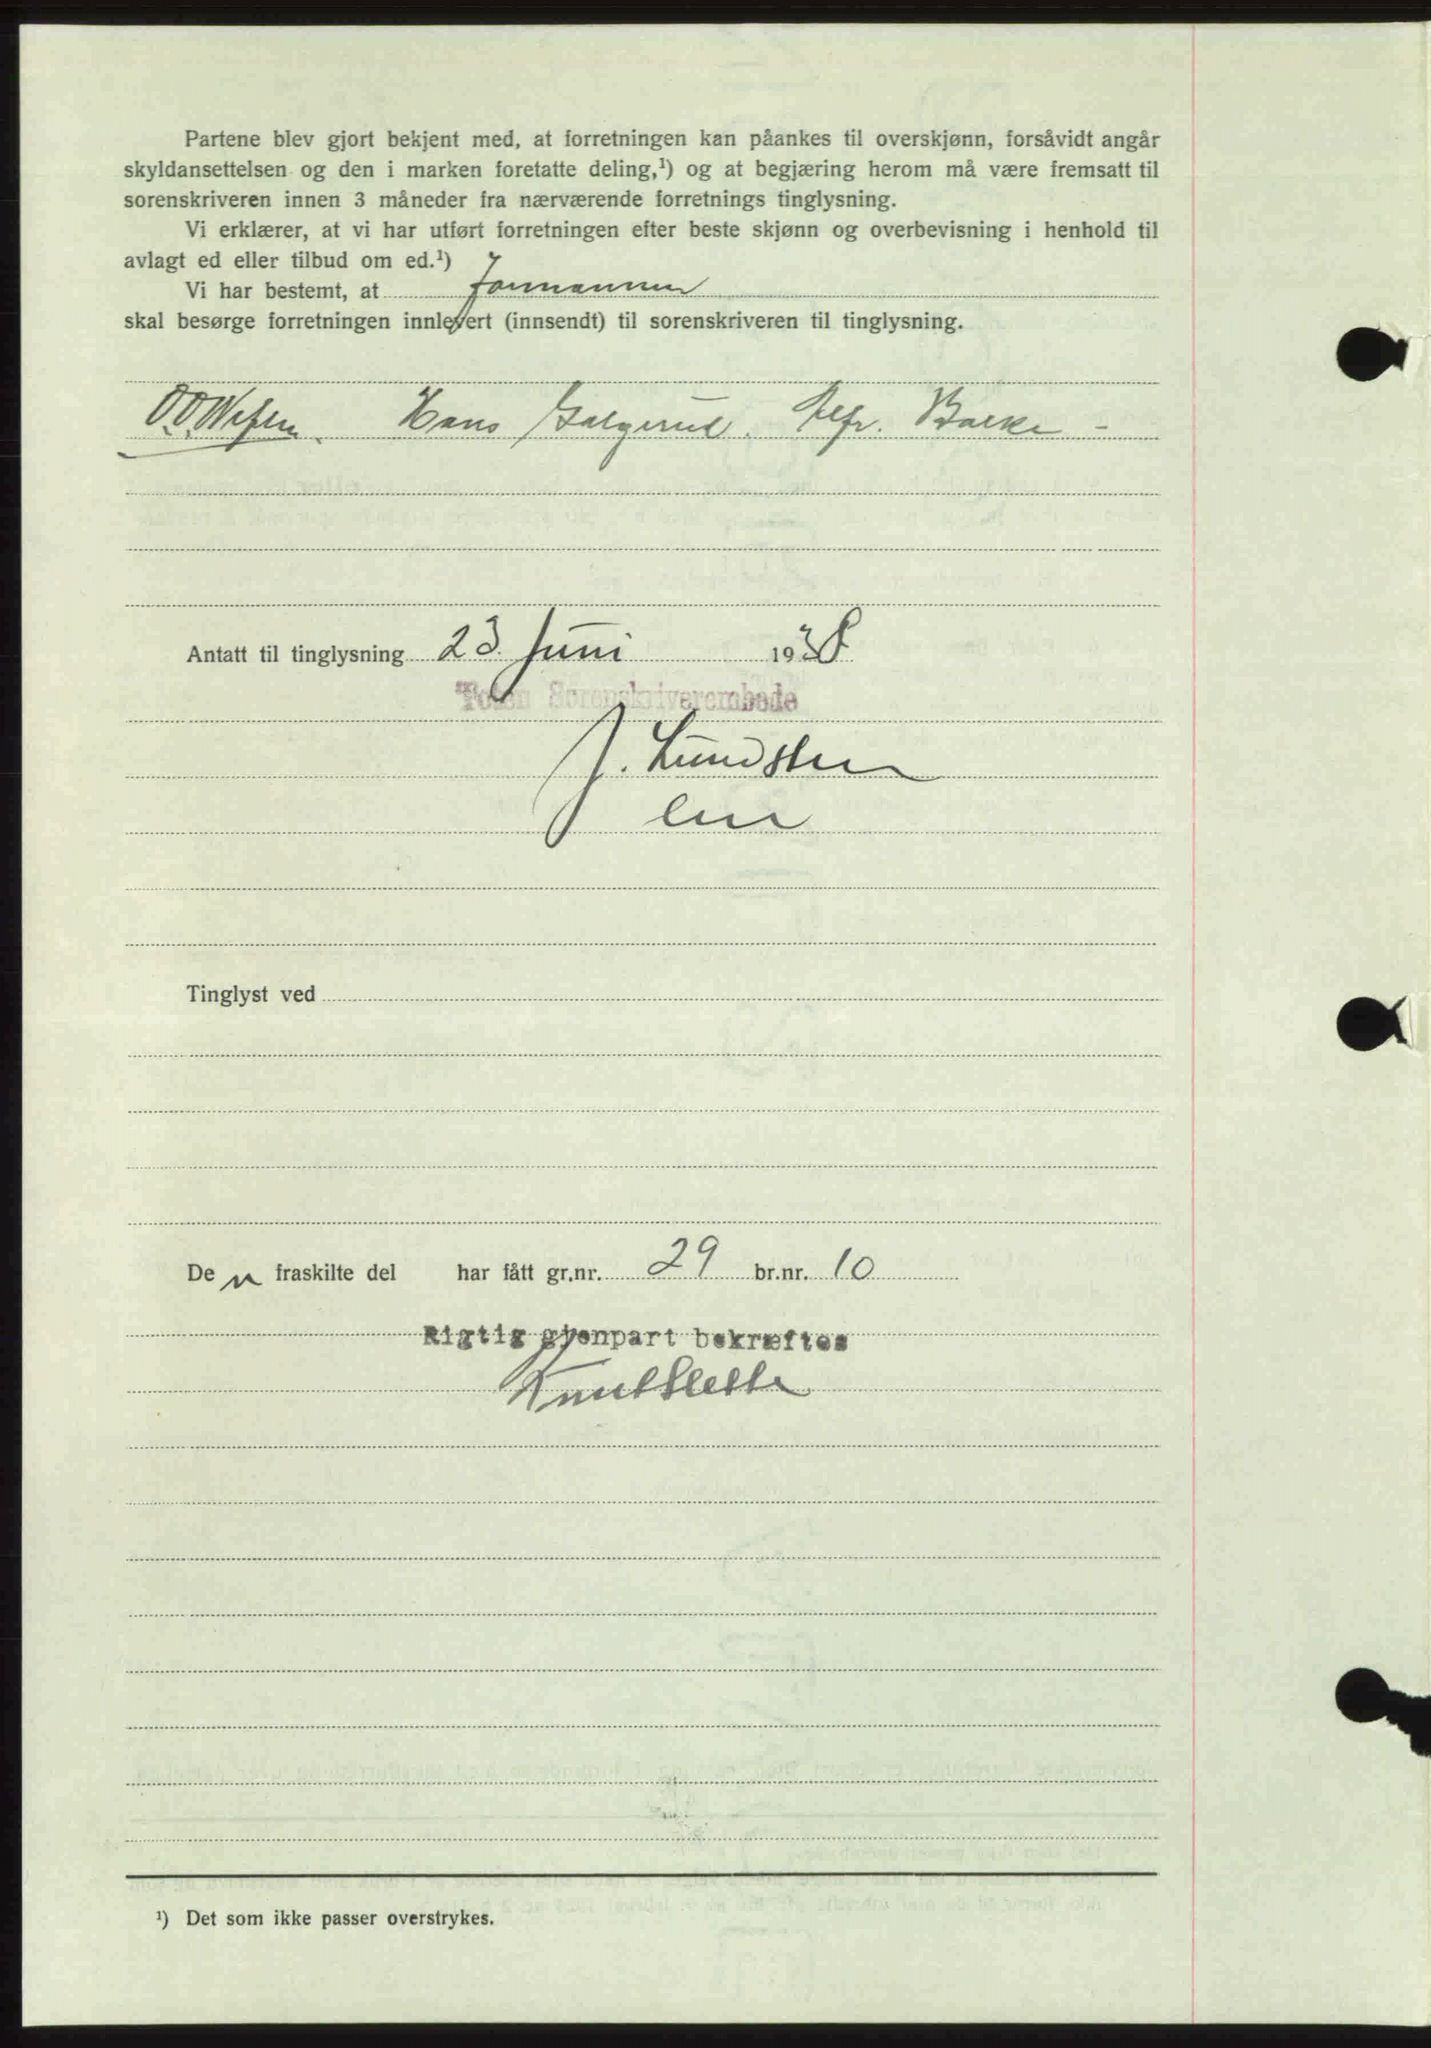 Partene blev gjort bekjent med, at forretningen kan påankes til overskjønn, forsåvidt angår
skyldansettelsen og den i marken foretatte deling,¹) og at begjæring herom må være fremsatt til
sorenskriveren innen 3 måneder fra nærværende forretnings tinglysning.
Vi erklærer, at vi har utført forretningen efter beste skjønn og overbevisning i henhold til
avlagt ed eller tilbud om ed.¹)
Vi har bestemt, at formannen
skal besørge forretningen innlevert (innsendt) til sorenskriveren til tinglysning.
Hans Galgerud. Alfr. Balke -
Antatt til tinglysning 23 Juni 1938
Toten Sorenskriverembede
J. Lundsten
Tinglyst ved
De n fraskilte del har fått gr.nr. 29 br.nr. 10
Rigtig gjenpart bekræftes
Knut Slette
¹) Det som ikke passer overstrykes.